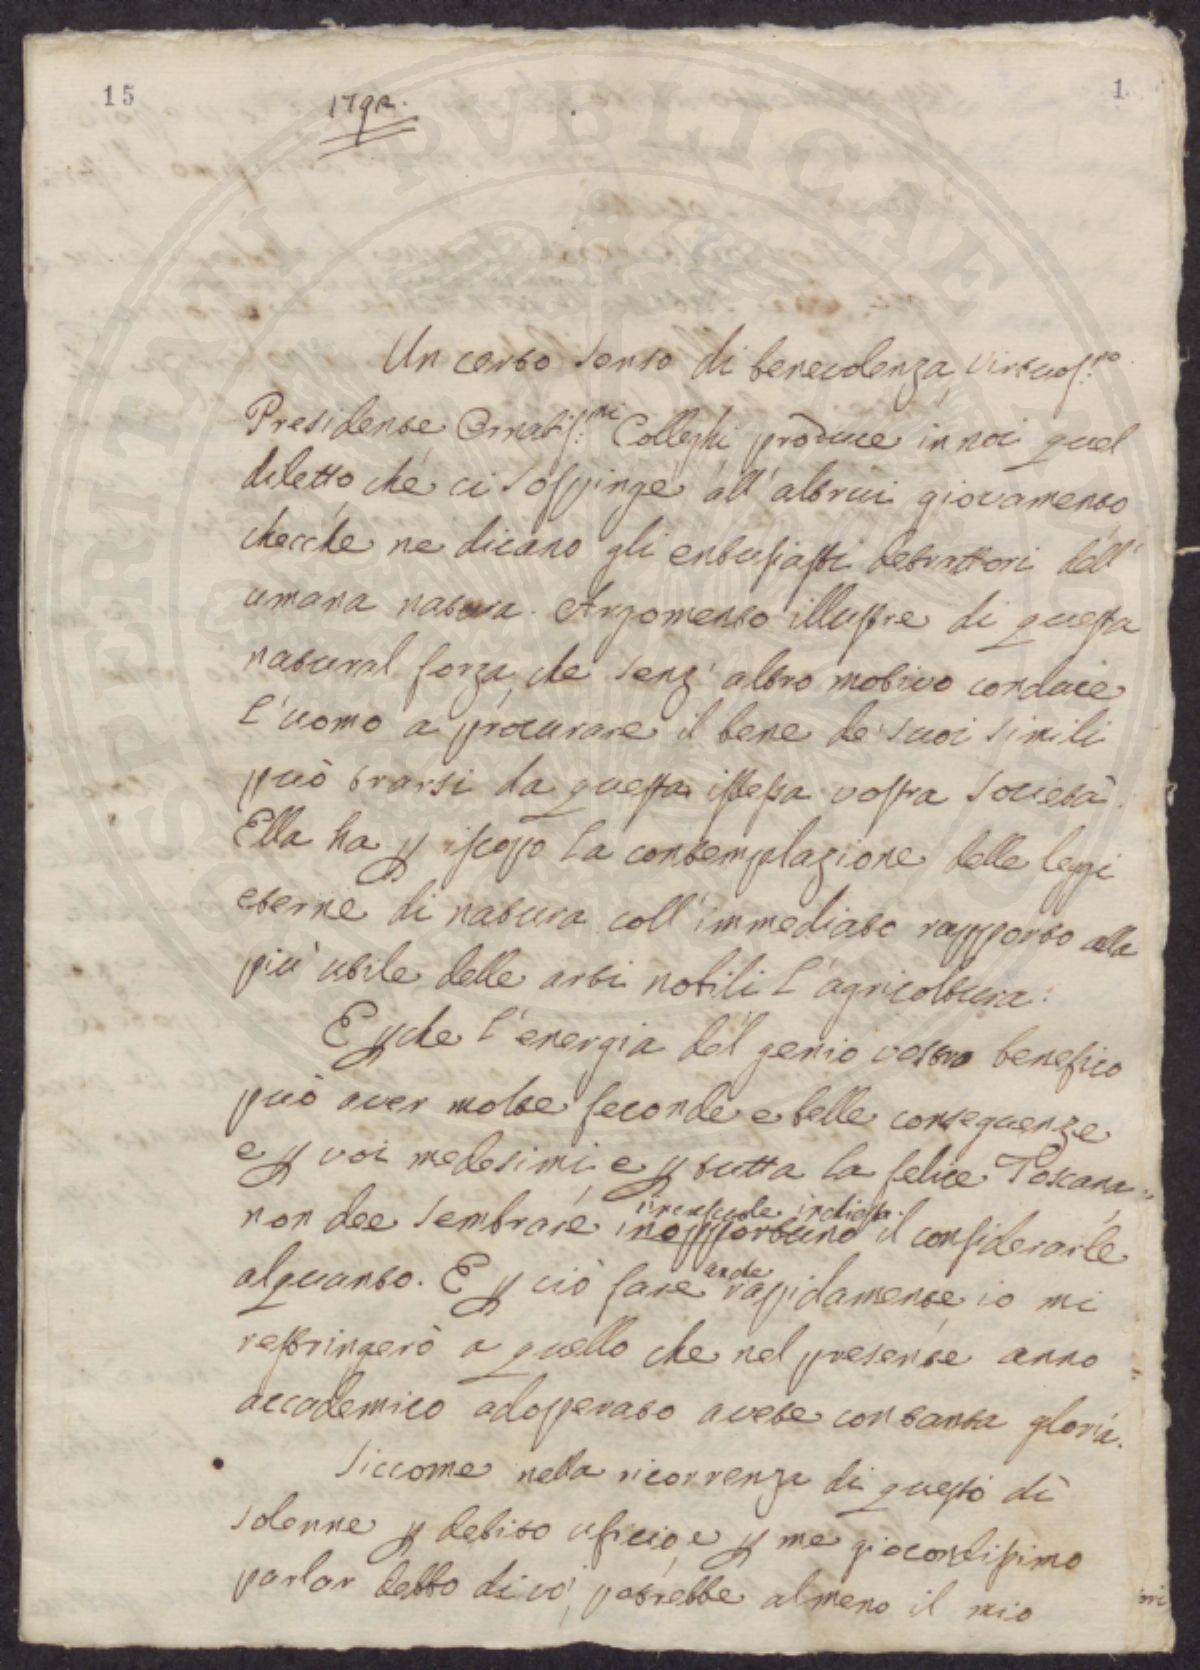 15
1
1792.
Un certo senso di benevolenza, Virtuos.mo
Presidente Ornatis.mi Colleghi produce in noi quel
diletto che ci sospinge all'altrui giovamento
checche ne dicano gli entusiasti detrattori dell'
umana natura. Argomento illustre di questa
natural forza, che senz'altro motivo conduce
l'uomo a procurare il bene de' suoi simili
può trarsi da questa istessa vostra Società.
Ella ha p iscopo la contemplazione delle leggi
eterne di natura coll'immediato rapporto alla
più utile delle arti nobili l'agricoltura.
E pche l'energia del genio vostro benefico
può aver molte feconde e belle conseguenze
e p voi medesimi, e p tutta la felice Toscana,
non dee sembrare inopportuno il considerarle
alquanto. E p ciò fare rapidamente io mi
restringerò a quello che nel presente anno
accademico adoperato avete con tanta gloria.
Siccome nella ricorrenza di questo dì
solenne p debito uficio, e p me giocondissimo
parlar debbo di voi, potrebbe almeno il mio